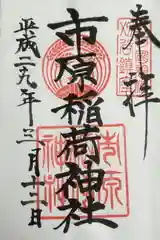 奉拝
市原稲荷神社
平成二九年三月十二日